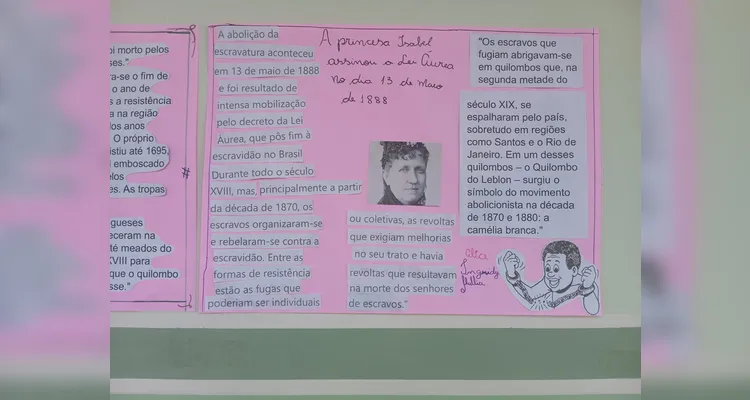 oi morto pelos
ses."
ra-se o fim de
o ano de
s a resistência
a na região
os anos
O próprio
stiu até 1695,
emboscado
elos
es. As tropas
gueses
eceram na
té meados do
VIII para
que o quilombo
sse."
A abolição da
escravatura aconteceu
em 13 de maio de 1888
e foi resultado de
intensa mobilização
pelo decreto da Lei
Áurea, que pôs fim à
escravidão no Brasil
Durante todo o século
XVIII, mas, principalmente a partir
da década de 1870, os
escravos organizaram-se
e rebelaram-se contra a
escravidão. Entre as
formas de resistência
estão as fugas que
poderiam ser individuais
A princesa Isabel
assinou a Lei Áurea
no dia 13 de maio
de 1888
ou coletivas, as revoltas
que exigiam melhorias
no seu trato e havia
revoltas que resultavam
na morte dos senhores
de escravos."
"Os escravos que
fugiam abrigavam-se
em quilombos que, na
segunda metade do
século XIX, se
espalharam pelo país,
sobretudo em regiões
como Santos e o Rio de
Janeiro. Em um desses
quilombos – o Quilombo
do Leblon – surgiu o
símbolo do movimento
abolicionista na década
de 1870 e 1880: a
camélia branca."